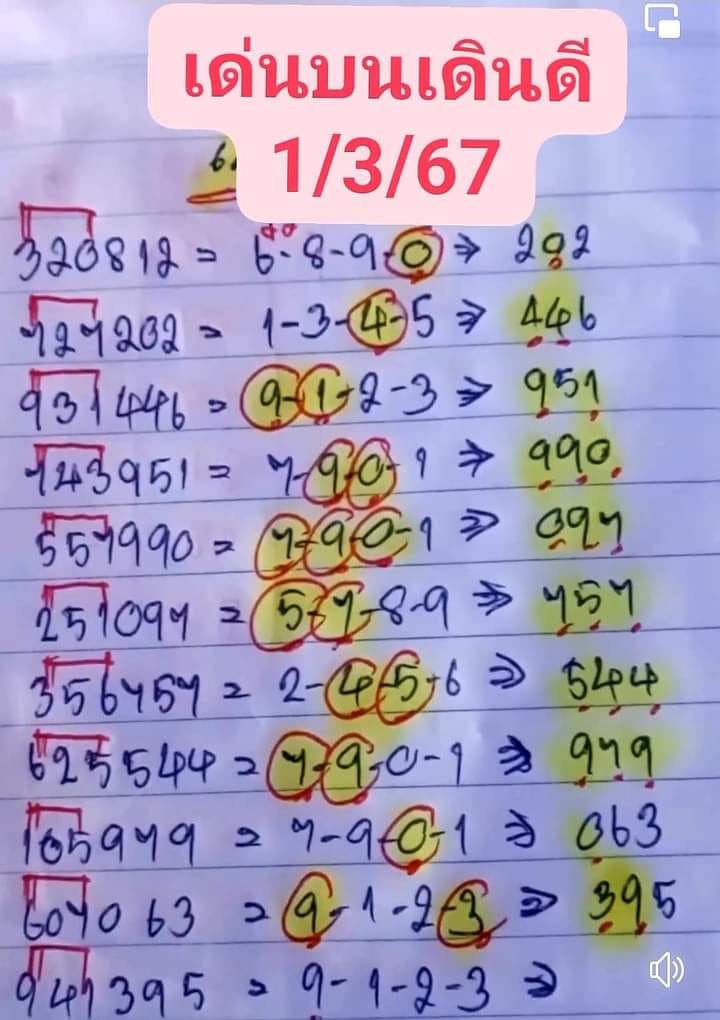 เด่นบนเดินดี
1/3/67
320812 = 6-8-9-0 ⇒ 202
727202 = 1-3-4-5 ⇒ 446
931446 = 9-1-2-3 ⇒ 951
743951 = 7-9-0-1 ⇒ 990
557990 = 7-9-0-1 ⇒ 097
251097 = 5-7-8-9 ⇒ 757
356757 = 2-4-5-6 ⇒ 544
625544 = 7-9-0-1 ⇒ 979
105979 = 7-9-0-1 ⇒ 063
607063 = 9-1-2-3 ⇒ 395
941395 = 9-1-2-3 ⇒